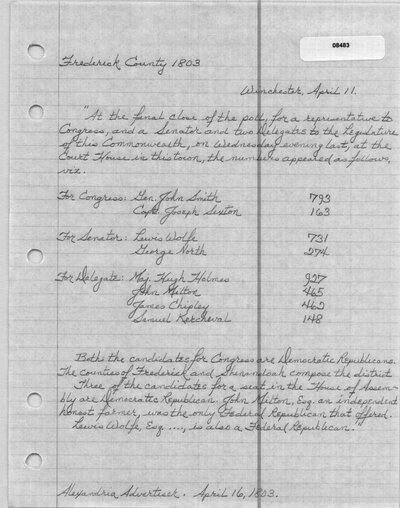 08483
Frederick County 1803
Winchester, April 11.
"At the final close of the poll, for a representative to
Congress, and a Senator and two Delegates to the Legislature
of this Commonwealth, on Wednesday evening last, at the
Court House in this town, the numbers appeared as follows,
viz.
For Congress: Gen. John Smith 793
Capt. Joseph Sexton 163
For Senator: Lewis Wolfe 731
George North 274
For Delegate: Maj. Hugh Holmes 927
John Milton 465
James Chipley 462
Samuel Kercheval 148
Both the candidates for Congress are Democratic Republicans.
The counties of Frederick and Shenandoah compose the district
Three of the candidates for a seat in the House of Assem-
bly are Democratic Republican. John Milton, Esq. an independent
honest farmer, was the only Federal Republican that offered.
Lewis Wolfe, Esq ...., is also a Federal Republican."
Alexandria Advertiser. April 16, 1803.